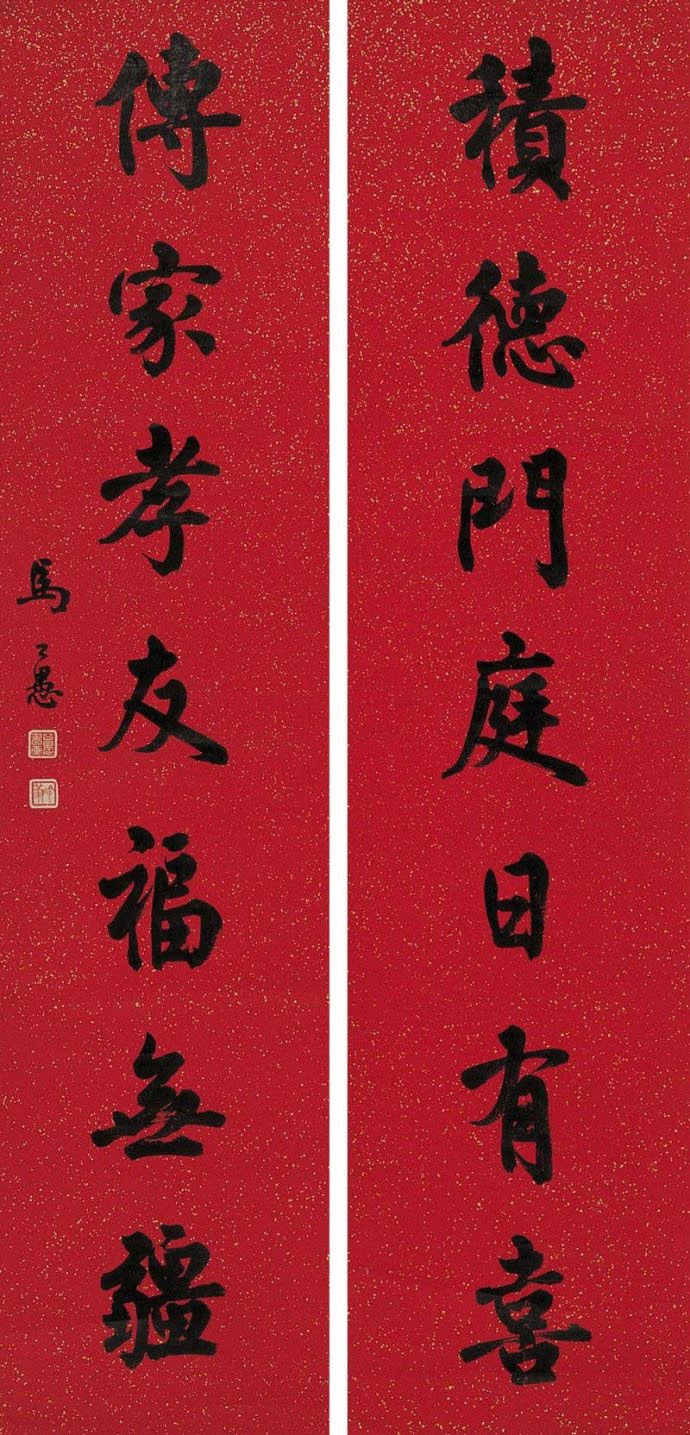 積德門庭日有喜
傳家孝友福無疆
馬公愚